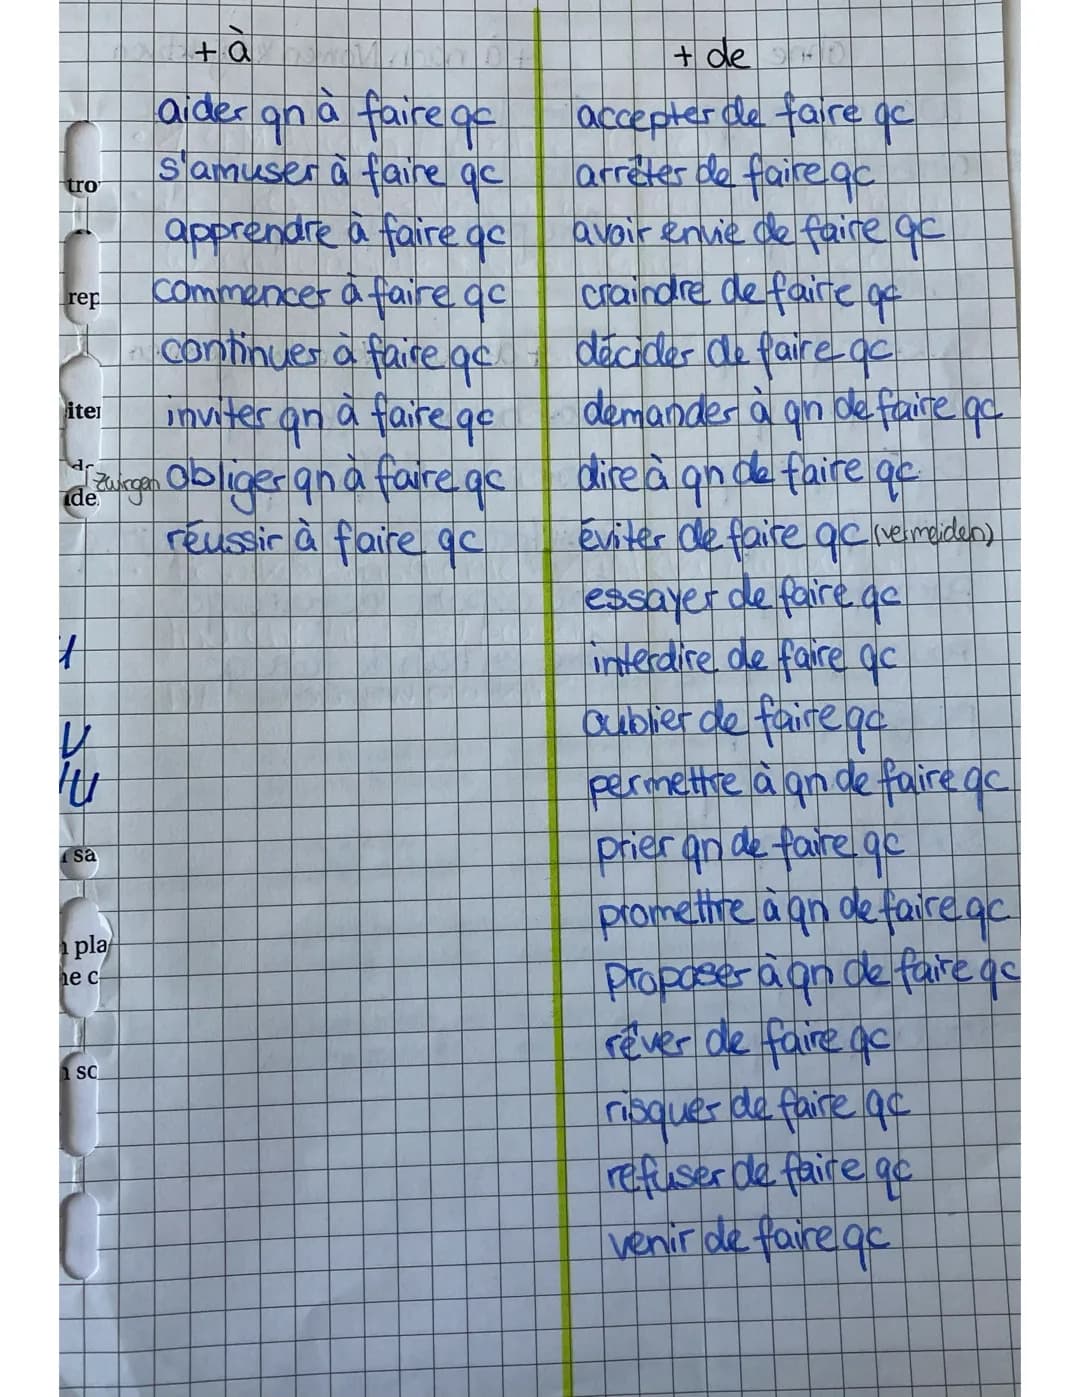 + à
aider qn à faire qc
s'amuser à faire qc
apprendre à faire qc
commencer à faire qc
continuer à faire qc
inviter qn à faire qc
zwingen obliger qn à faire qc
réussir à faire qc
+ de
accepter de faire qc
arrêter de faire qc
avoir envie de faire qc
craindre de faire qc
décider de faire qc
demander à qn de faire qc
dire à qn de faire qc
éviter de faire qc (vermeiden)
essayer de faire qc
interdire de faire qc
oublier de faire qc
permettre à qn de faire qc
prier qn de faire qc
promettre à qn de faire qc
proposer à qn de faire qc
rêver de faire qc
risquer de faire qc
refuser de faire qc
venir de faire qc
tro
rep
iter
ide
sa
pla
ne c
sc